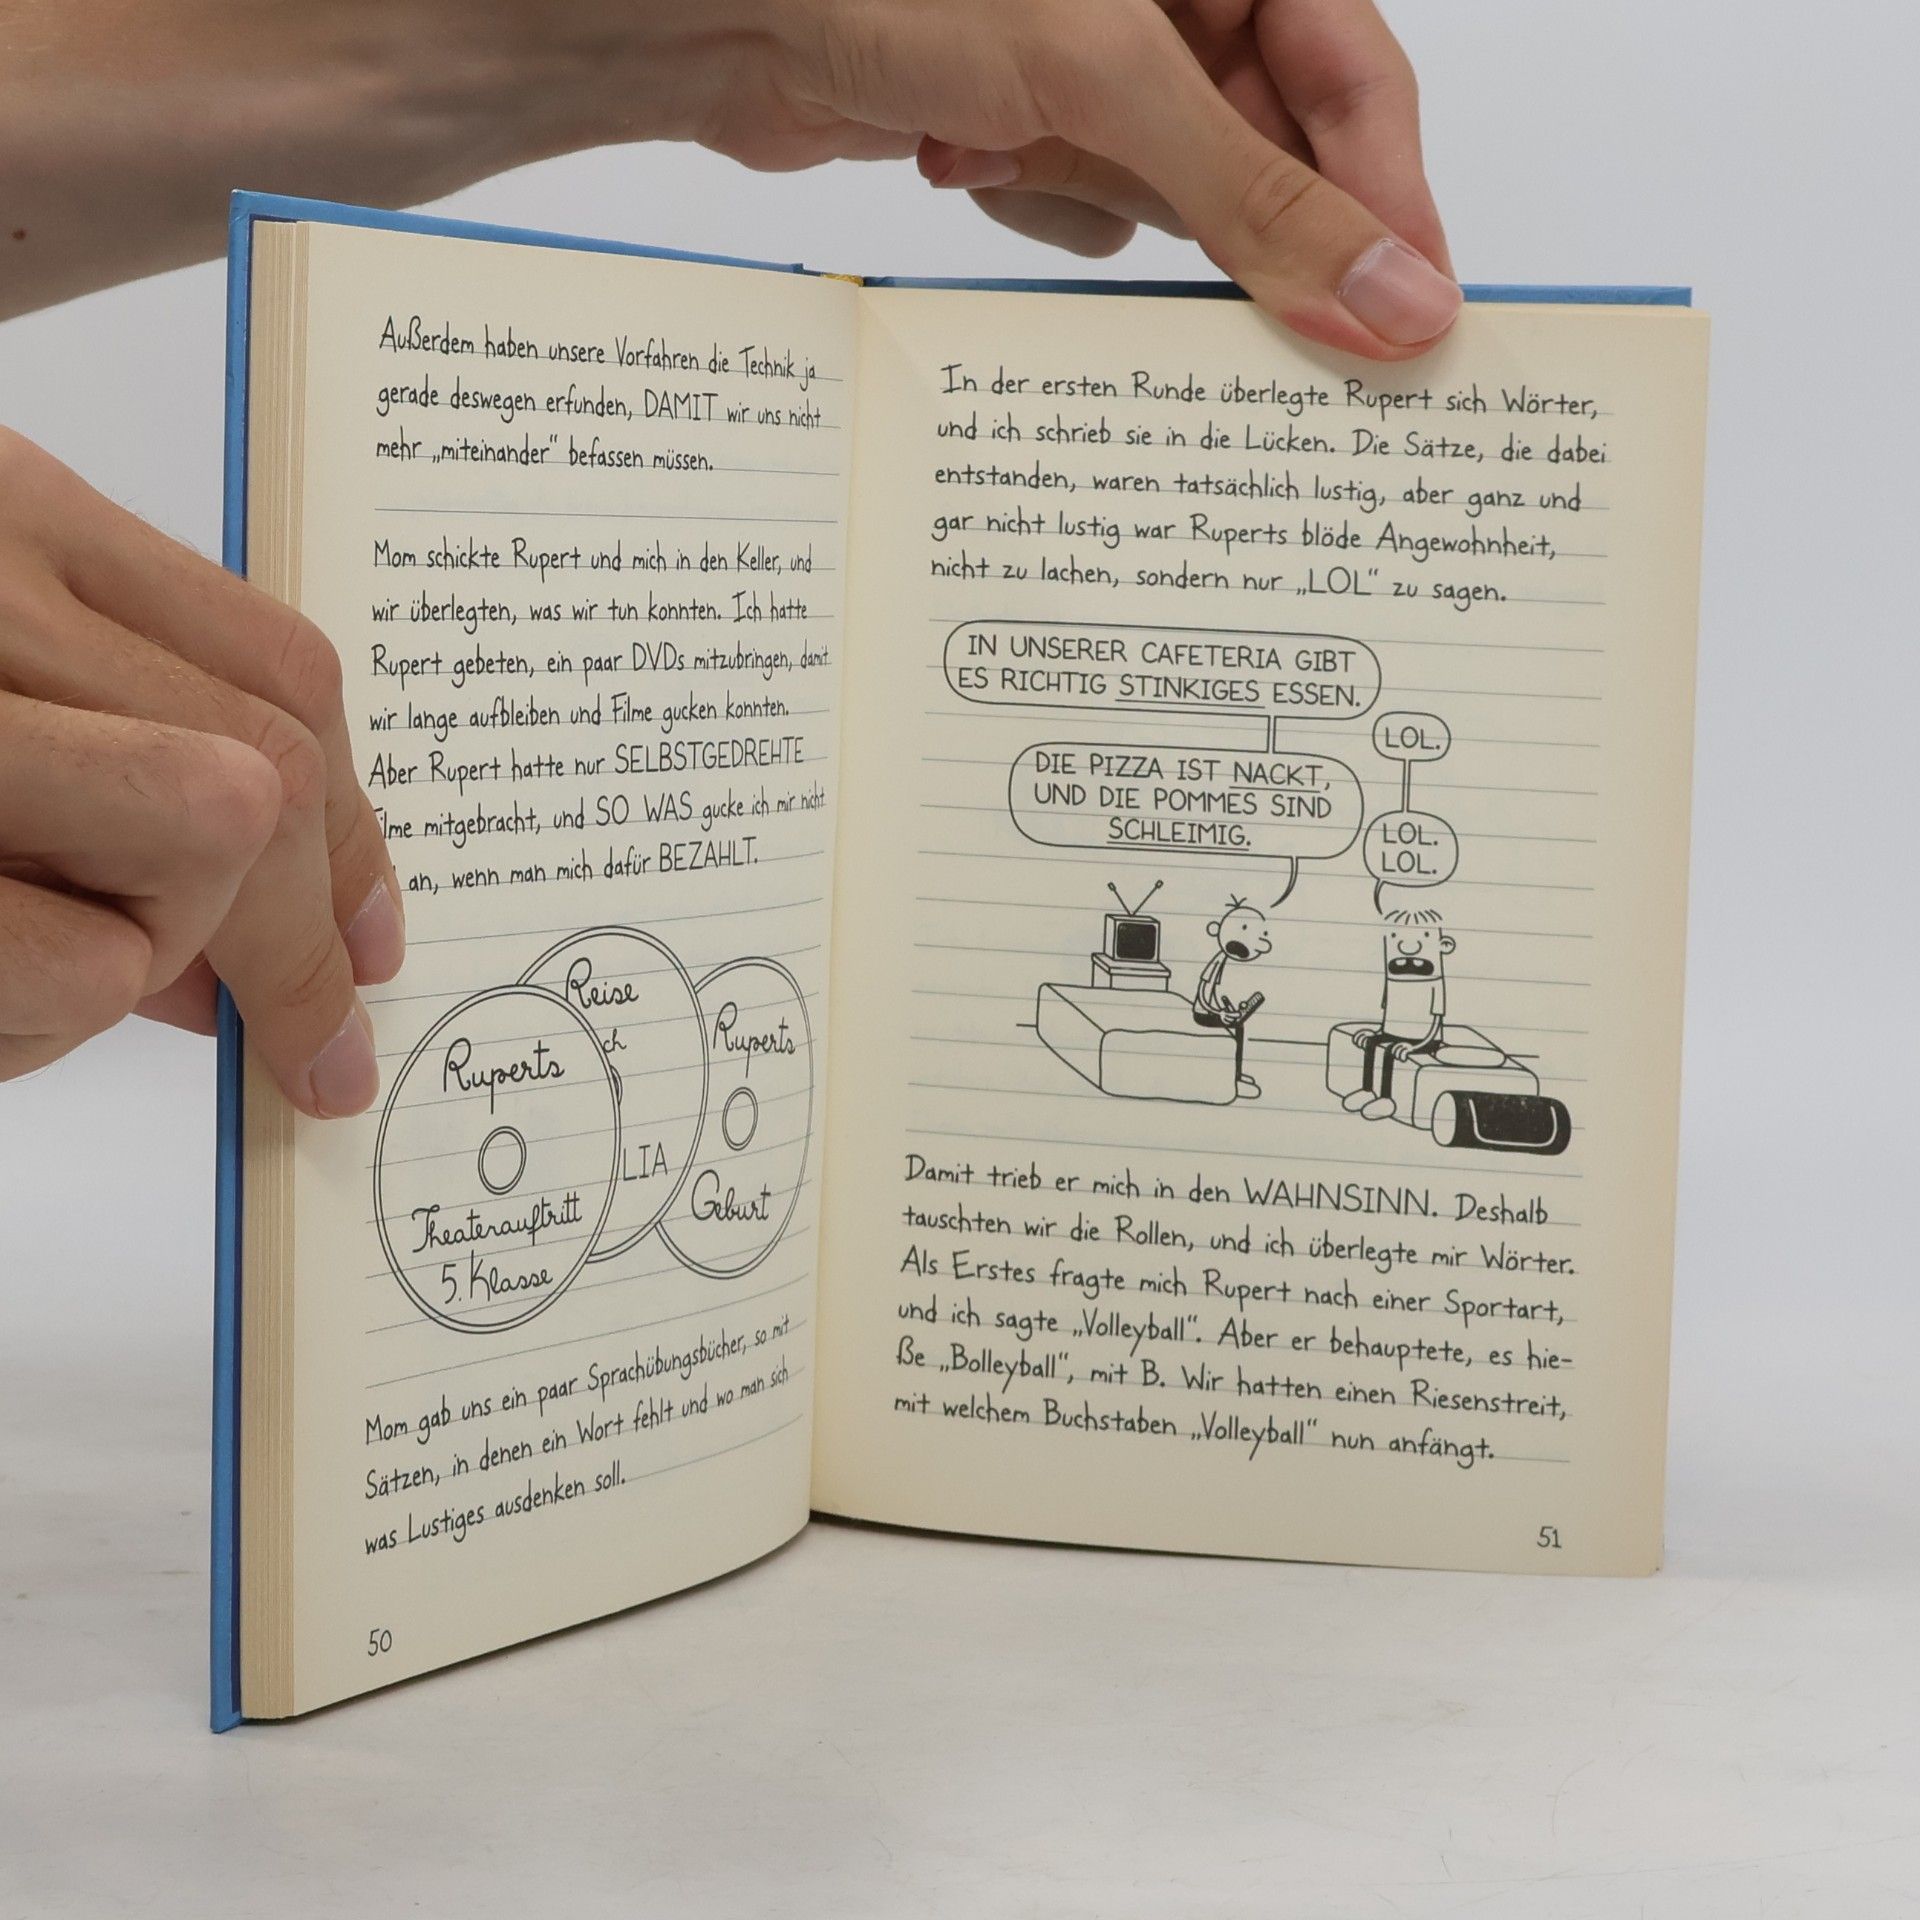 Außerdem haben unsere Vorfahren die Technik ja
gerade deswegen erfunden, DAMIT wir uns nicht
mehr „miteinander“ befassen müssen.
Mom schickte Rupert und mich in den Keller, und
wir überlegten, was wir tun konnten. Ich hatte
Rupert gebeten, ein paar DVDs mitzubringen, damit
wir lange aufbleiben und Filme gucken konnten.
Aber Rupert hatte nur SELBSTGEDREHTE
mitgebracht, und SO WAS gucke ich mir nicht
an, wenn man mich dafür BEZAHLT.
Ruperts
Theaterauftritt
5. Klasse
Reise
ch
LIA
Ruperts
Geburt
Mom gab uns ein paar Sprachübungsbücher, so mit
Sätzen, in denen ein Wort fehlt und wo man sich
was Lustiges ausdenken soll.
50
In der ersten Runde überlegte Rupert sich Wörter,
und ich schrieb sie in die Lücken. Die Sätze, die dabei
entstanden, waren tatsächlich lustig, aber ganz und
gar nicht lustig war Ruperts blöde Angewohnheit,
nicht zu lachen, sondern nur „LOL“ zu sagen.
IN UNSERER CAFETERIA GIBT
ES RICHTIG STINKIGES ESSEN.
LOL.
DIE PIZZA IST NACKT,
UND DIE POMMES SIND
SCHLEIMIG.
LOL.
LOL.
Damit trieb er mich in den WAHNSINN. Deshalb
tauschten wir die Rollen, und ich überlegte mir Wörter.
Als Erstes fragte mich Rupert nach einer Sportart,
und ich sagte „Volleyball“. Aber er behauptete, es hie-
ße „Bolleyball“, mit B. Wir hatten einen Riesenstreit,
mit welchem Buchstaben „Volleyball“ nun anfängt.
51